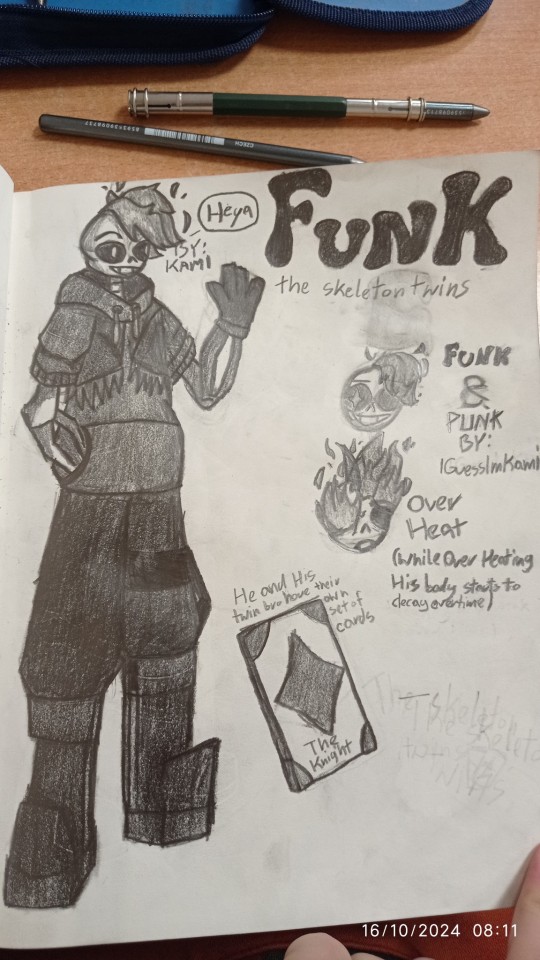 Heya
BY:
KAMI
FUNK
the skeleton twins
FUNK
&
PUNK
BY:
IGuessImKami
Over
Heat
(While Over Heating
His body starts to
decay overtime)
He and His
twin bro have their
own
set of
cards
The
Knight
The skeleton
16/10/2024 08:11